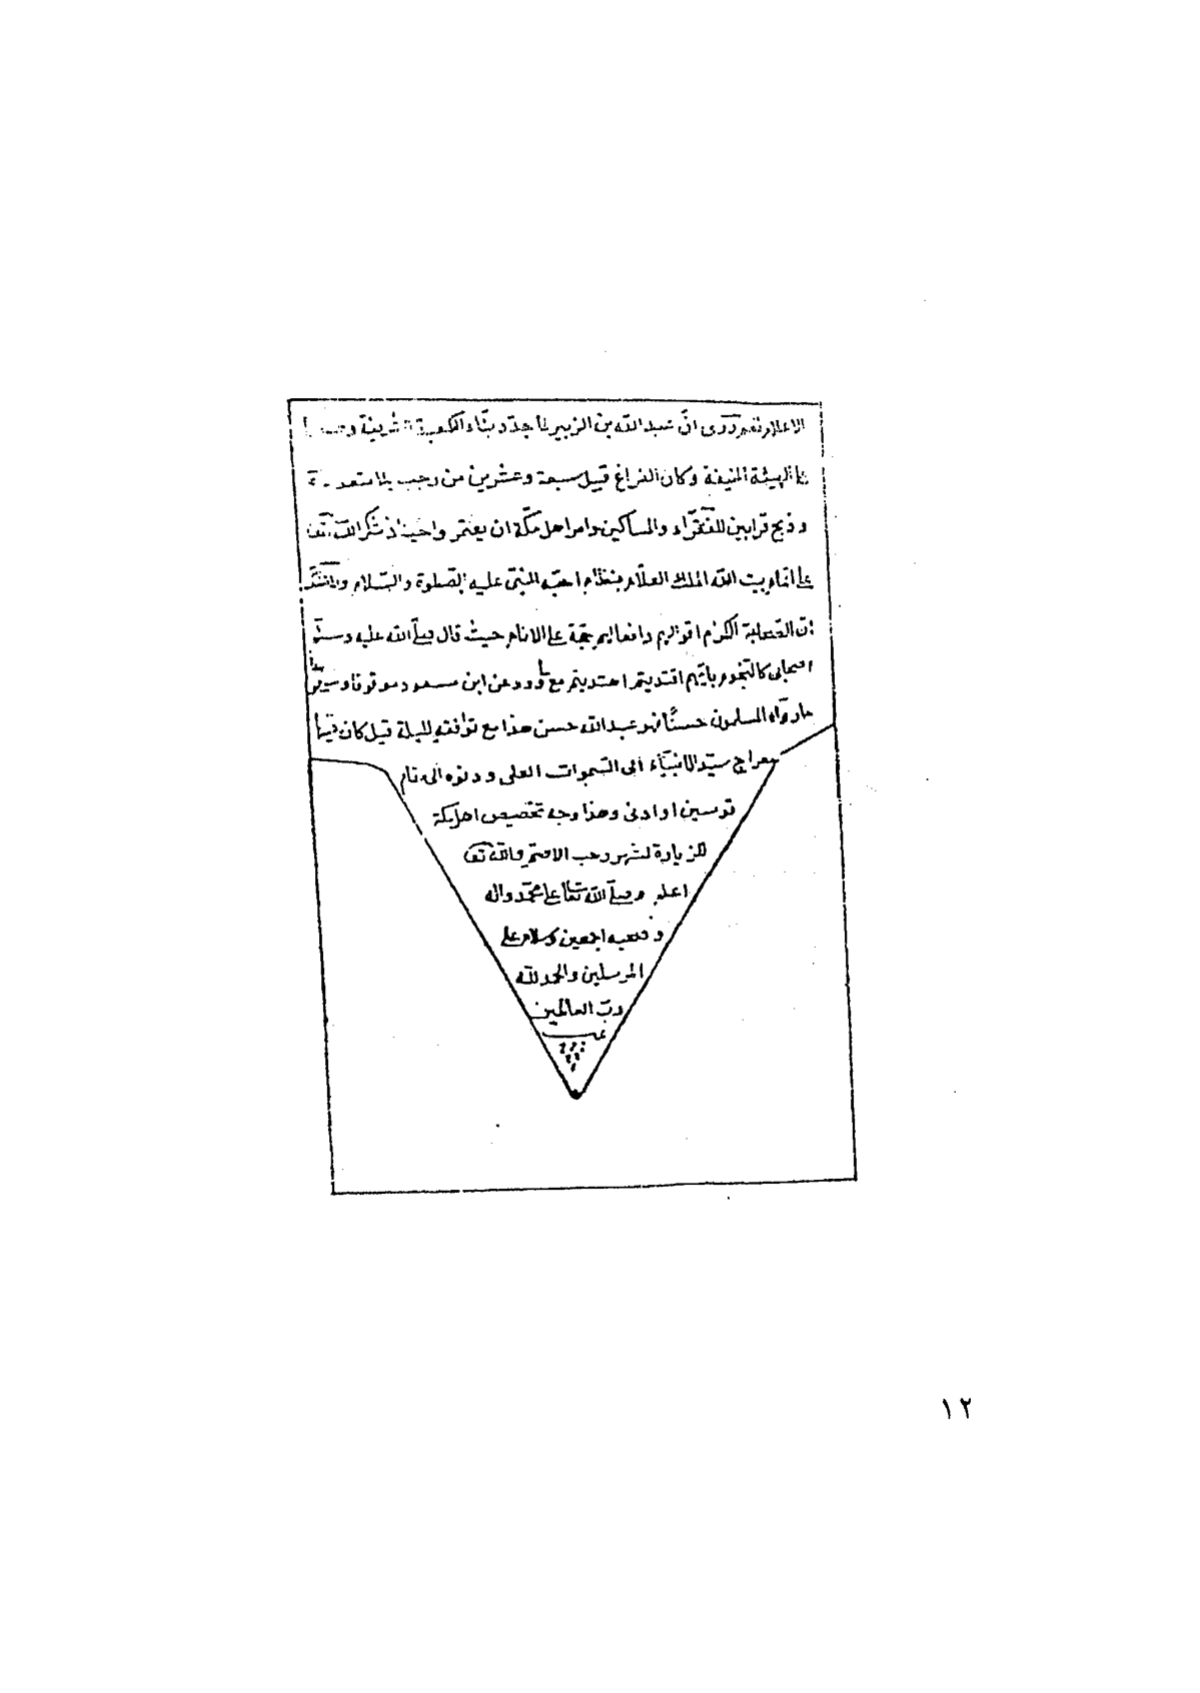 الاعلام نعم روى انّ عبد الله بن الزبير لما جدّد بنّاء الكعبة الشريفة
على الهيئة المنيفة وكان الفراغ قبيل سبعة وعشرين من رجب
وذبح قرابين للفقرّاء والمساكين وامر اهل مكّة ان يعتمروا حينئذ شكرا لله تعا
على اتمام بيت الله الملك العلّام بنظام احبّه النبىّ عليه الصلوة والسّلام
انّ الصحابة الكرام اقوالهم وافعالهم حجّة على الانام حيث قال صلّى الله عليه وسلّم
اصحابى كالنجوم بايّهم اقتديتم اهتديتم مع ما ورد عن ابن مسعود موقوفا ومرفوعا
مارآه المسلمون حسنًا فهو عند الله حسن هذا مع توافقه لليلة قيل كان فيها
معراج سيّد الانبيّاء الى السّموات العلى ودنوه الى قاب
قوسين او ادنى وهذا وجه تخصيص اهل مكة
للزيارة لشهر رجب الاصمّ والله تعا
اعلم وصلّى الله تعالى على محمّد واله
وصحبه اجمعين وسلام على
المرسلين والحمد لله
ربّ العالمين
تمت
١٢